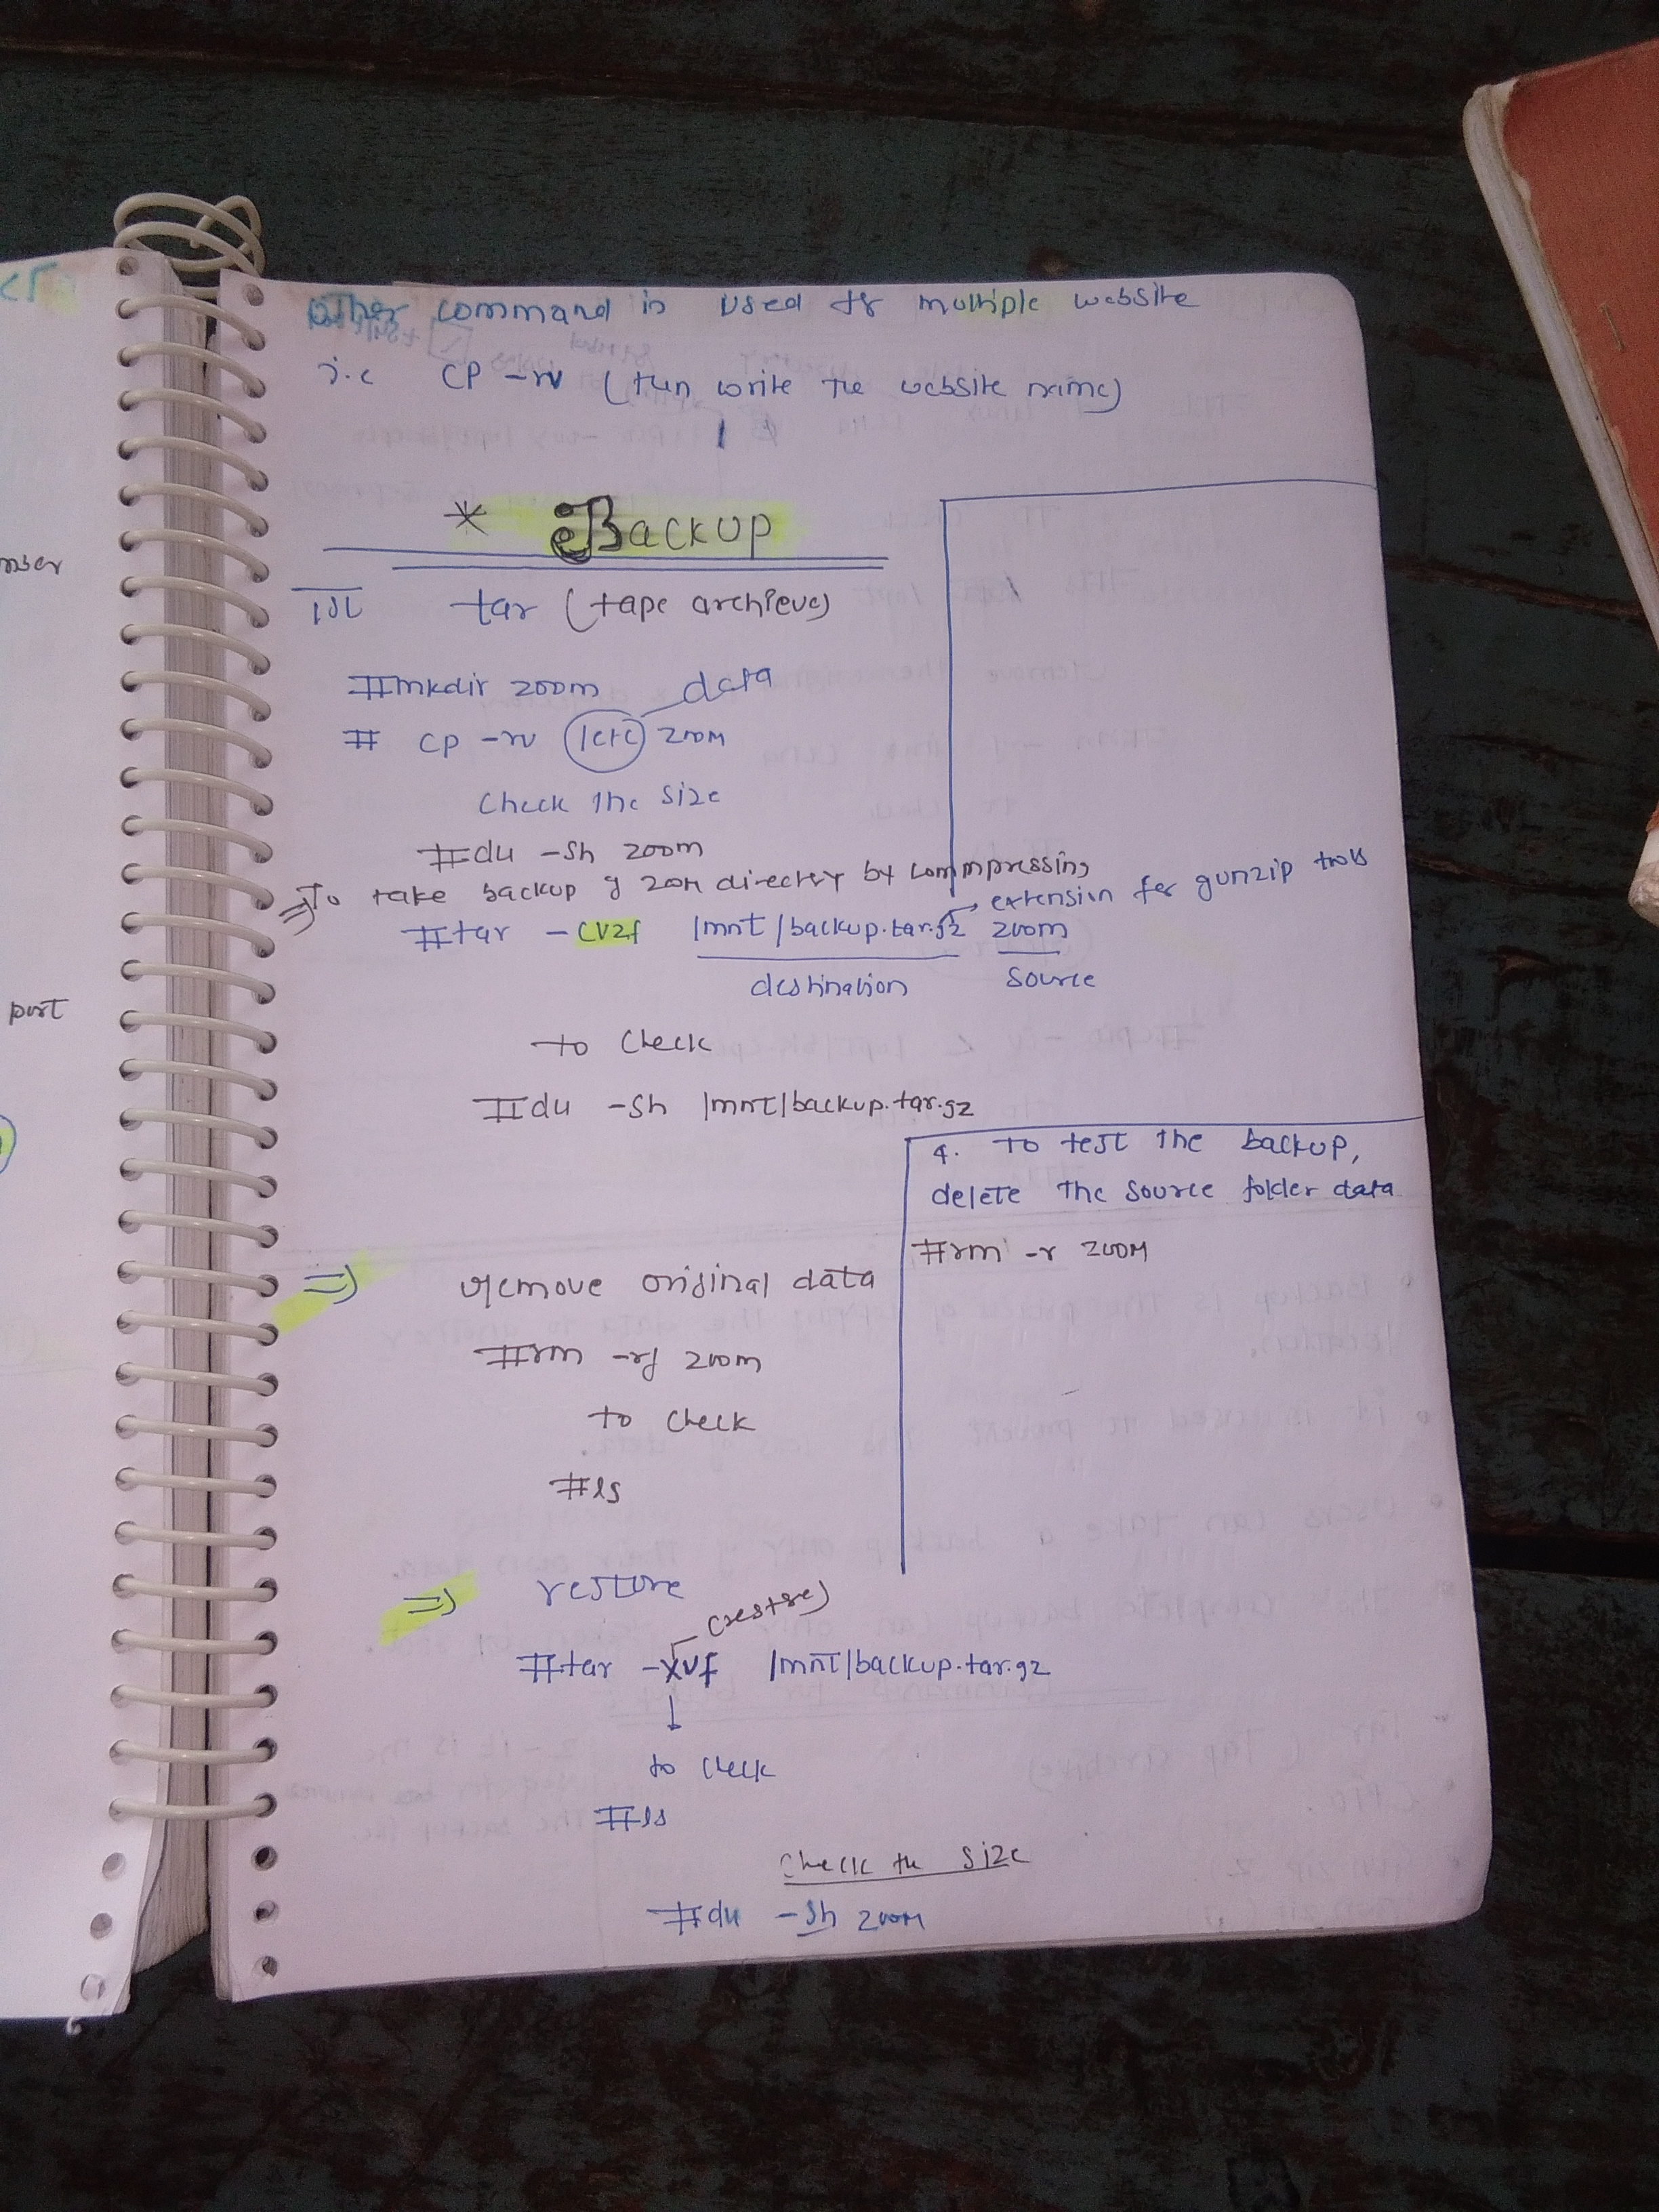 other command is used for multiple website
i.e cp -rv (then write the website name)
* Backup
1st tar (tape archieve)
#mkdir zoom data
# cp -rv /etc zoom
Check the size
#du -sh zoom
⇒ To take backup of zoom directly by commpressing
extension for gunzip tools
#tar -cvzf /mnt/backup.tar.gz zoom
destination source
to check
#du -sh /mnt/backup.tar.gz
4. To test the backup,
delete the source folder data
#rm -r zoom
⇒ remove original data
#rm -rf zoom
to check
#ls
⇒ restore
(restore)
#tar -xvf /mnt/backup.tar.gz
to check
#ls
check the size
#du -sh zoom
port